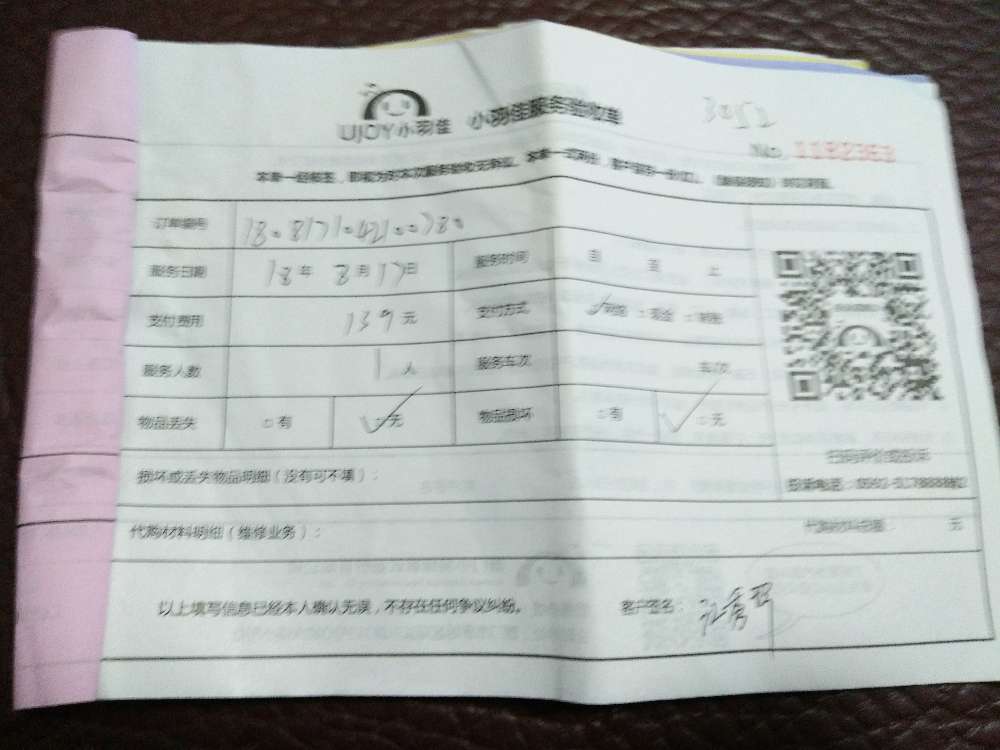 UJOY小羽佳 小羽佳服务验收单
3052
No 1182352
本单一经签署，即视为对本次服务验收无争议。本单一式两份，客户保留一份
订单编号 1808171042100780
服务日期 18年 8月17日 服务时间 自 至 止
支付费用 139元 支付方式 ✓ □现金 □转账
服务人数 1人 服务车次 车次
物品丢失 □有 ✓□无 物品损坏 □有 ✓□无
扫码评价或投诉
损坏或丢失物品明细（没有可不填）：
代购材料明细（维修业务）： 代购材料总额： 元
以上填写信息已经本人确认无误，不存在任何争议纠纷。 客户签名：